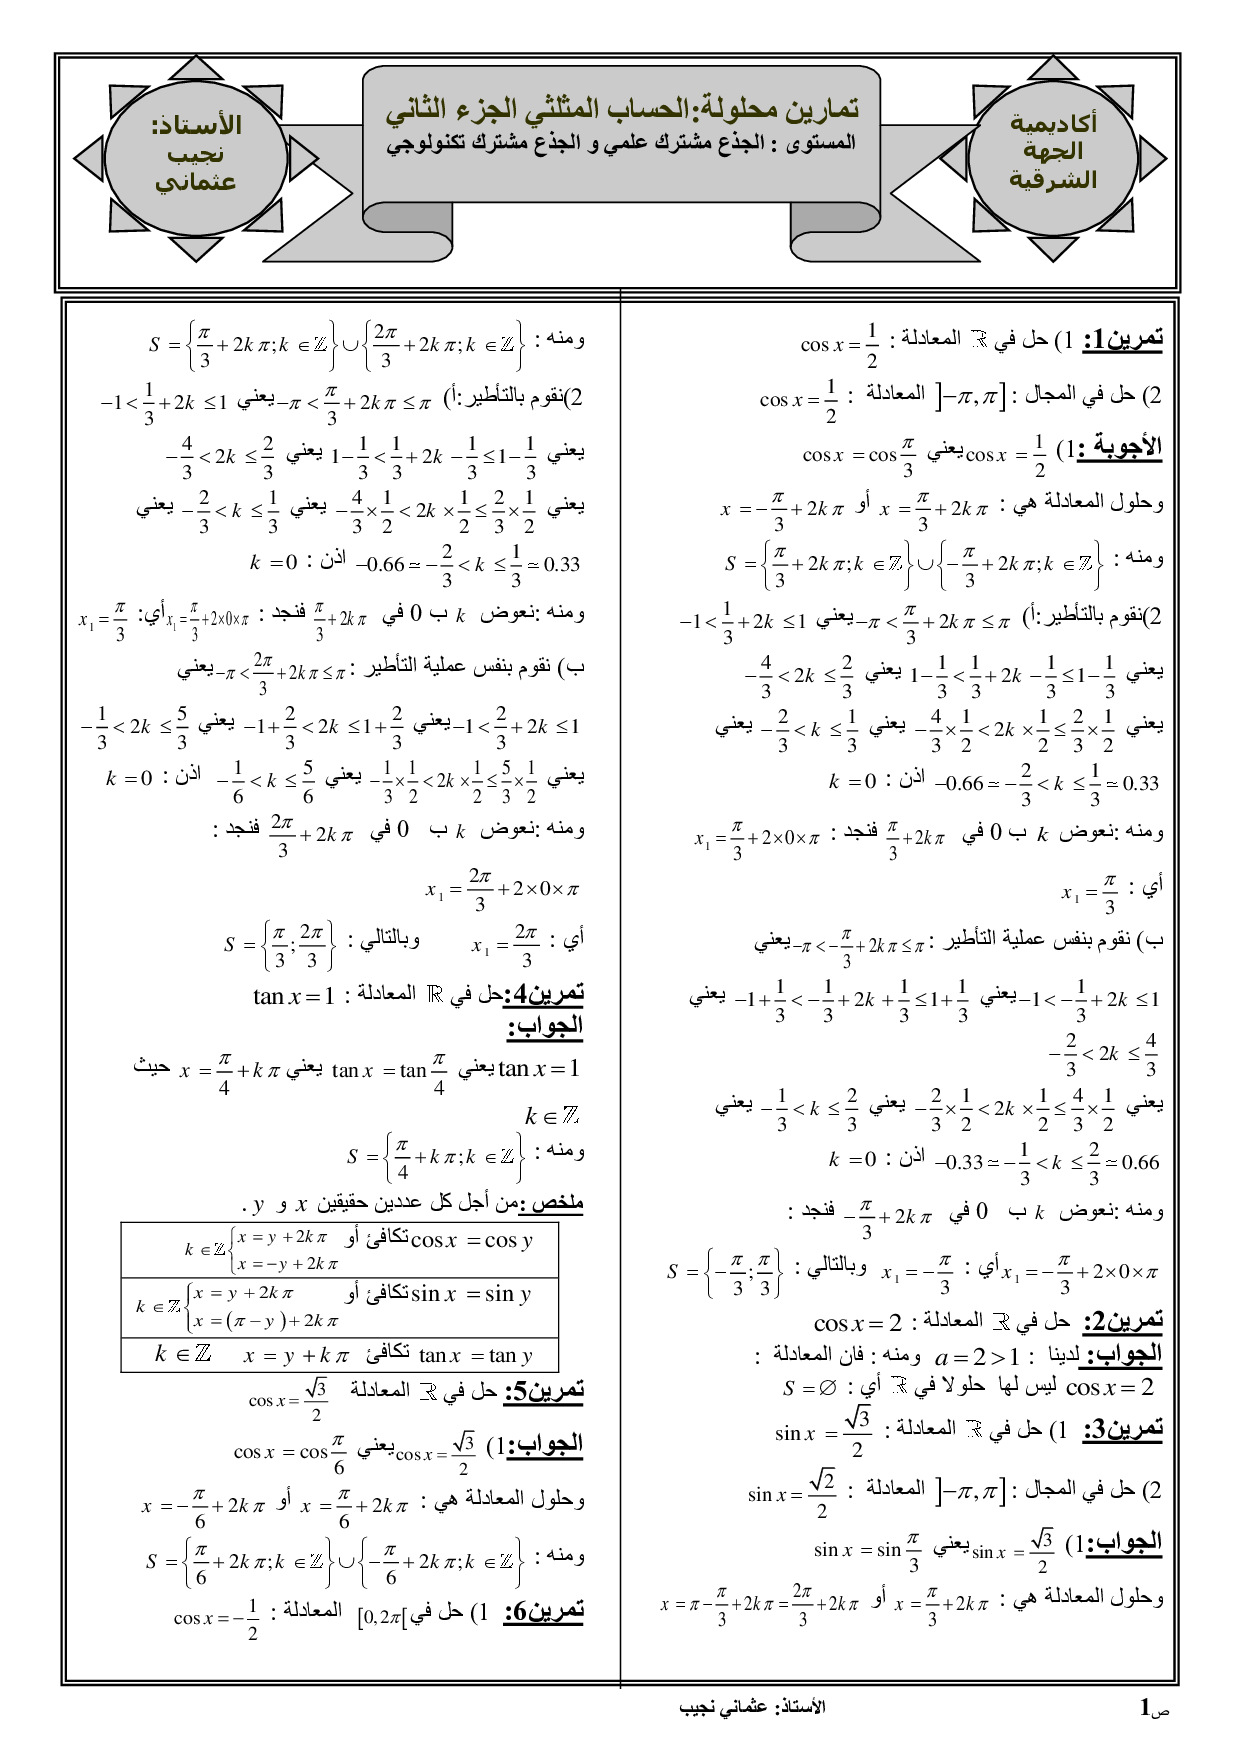 أكاديمية
الجهة
الشرقية
تمارين محلولة:الحساب المثلثي الجزء الثاني
المستوى : الجذع مشترك علمي و الجذع مشترك تكنولوجي
الأستاذ:
نجيب
عثماني
تمرين1: 1) حل في ℝ المعادلة : cos x = 1/2
2) حل في المجال : ]−π,π] المعادلة : cos x = 1/2
الأجوبة :1) cos x = 1/2 يعني cos x = cos π/3
وحلول المعادلة هي : x = π/3 + 2kπ أو x = −π/3 + 2kπ
ومنه : S = {π/3 + 2kπ; k ∈ ℤ} ∪ {−π/3 + 2kπ; k ∈ ℤ}
2)نقوم بالتأطير:أ) −π < π/3 + 2kπ ≤ π يعني −1 < 1/3 + 2k ≤ 1
يعني 1 − 1/3 < 1/3 + 2k − 1/3 ≤ 1 − 1/3 يعني −4/3 < 2k ≤ 2/3
يعني −4/3 × 1/2 < 2k × 1/2 ≤ 2/3 × 1/2 يعني −2/3 < k ≤ 1/3 يعني
−0.66 ≃ −2/3 < k ≤ 1/3 ≃ 0.33 اذن : k = 0
ومنه :نعوض k ب 0 في π/3 + 2kπ فنجد : x₁ = π/3 + 2×0×π
أي : x₁ = π/3
ب) نقوم بنفس عملية التأطير : −π < −π/3 + 2kπ ≤ π يعني
−1 < −1/3 + 2k ≤ 1 يعني −1 + 1/3 < −1/3 + 2k + 1/3 ≤ 1 + 1/3 يعني
−2/3 < 2k ≤ 4/3
يعني −2/3 × 1/2 < 2k × 1/2 ≤ 4/3 × 1/2 يعني −1/3 < k ≤ 2/3 يعني
−0.33 ≃ −1/3 < k ≤ 2/3 ≃ 0.66 اذن : k = 0
ومنه :نعوض k ب 0 في −π/3 + 2kπ فنجد :
x₁ = −π/3 + 2×0×π أي : x₁ = −π/3 وبالتالي : S = {−π/3; π/3}
تمرين2: حل في ℝ المعادلة : cos x = 2
الجواب: لدينا : a = 2 > 1 ومنه : فان المعادلة :
cos x = 2 ليس لها حلولا في ℝ أي : S = ∅
تمرين3: 1) حل في ℝ المعادلة : sin x = √3/2
2) حل في المجال : ]−π,π] المعادلة : sin x = √2/2
الجواب:1) sin x = √3/2 يعني sin x = sin π/3
وحلول المعادلة هي : x = π/3 + 2kπ أو x = π − π/3 + 2kπ = 2π/3 + 2kπ
ومنه : S = {π/3 + 2kπ; k ∈ ℤ} ∪ {2π/3 + 2kπ; k ∈ ℤ}
2)نقوم بالتأطير:أ) −π < π/3 + 2kπ ≤ π يعني −1 < 1/3 + 2k ≤ 1
يعني 1 − 1/3 < 1/3 + 2k − 1/3 ≤ 1 − 1/3 يعني −4/3 < 2k ≤ 2/3
يعني −4/3 × 1/2 < 2k × 1/2 ≤ 2/3 × 1/2 يعني −2/3 < k ≤ 1/3 يعني
−0.66 ≃ −2/3 < k ≤ 1/3 ≃ 0.33 اذن : k = 0
ومنه :نعوض k ب 0 في π/3 + 2kπ فنجد : x₁ = π/3 + 2×0×π أي: x₁ = π/3
ب) نقوم بنفس عملية التأطير : −π < 2π/3 + 2kπ ≤ π يعني
−1 < 2/3 + 2k ≤ 1 يعني −1 + 2/3 < 2k ≤ 1 + 2/3 يعني −1/3 < 2k ≤ 5/3
يعني −1/3 × 1/2 < 2k × 1/2 ≤ 5/3 × 1/2 يعني −1/6 < k ≤ 5/6 اذن : k = 0
ومنه :نعوض k ب 0 في 2π/3 + 2kπ فنجد :
x₁ = 2π/3 + 2×0×π
أي : x₁ = 2π/3 وبالتالي : S = {π/3; 2π/3}
تمرين4:حل في ℝ المعادلة : tan x = 1
الجواب:
tan x = 1 يعني tan x = tan π/4 يعني x = π/4 + kπ حيث
k ∈ ℤ
ومنه : S = {π/4 + kπ; k ∈ ℤ}
ملخص :من أجل كل عددين حقيقين x و y .
cos x = cos y تكافئ x = y + 2kπ أو x = −y + 2kπ k ∈ ℤ
sin x = sin y تكافئ x = y + 2kπ أو x = (π − y) + 2kπ k ∈ ℤ
tan x = tan y تكافئ x = y + kπ k ∈ ℤ
تمرين5: حل في ℝ المعادلة cos x = √3/2
الجواب:1) cos x = √3/2 يعني cos x = cos π/6
وحلول المعادلة هي : x = π/6 + 2kπ أو x = −π/6 + 2kπ
ومنه : S = {π/6 + 2kπ; k ∈ ℤ} ∪ {−π/6 + 2kπ; k ∈ ℤ}
تمرين6: 1) حل في [0,2π[ المعادلة : cos x = −1/2
ص1
الأستاذ: عثماني نجيب